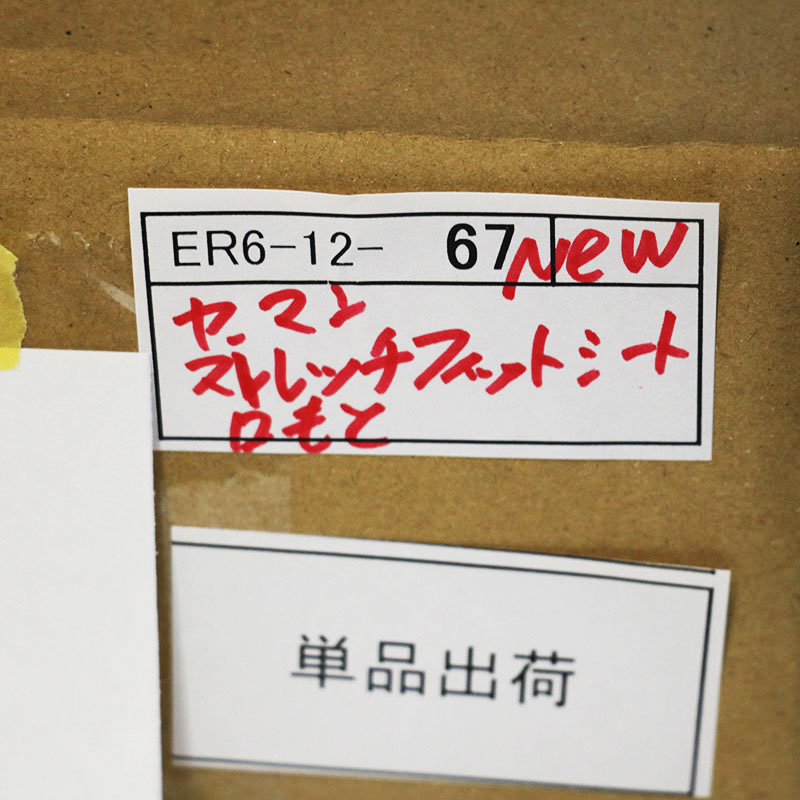 ER6-12- 67 New
ヤーマン
ストレッチフィットシート
口もと
単品出荷